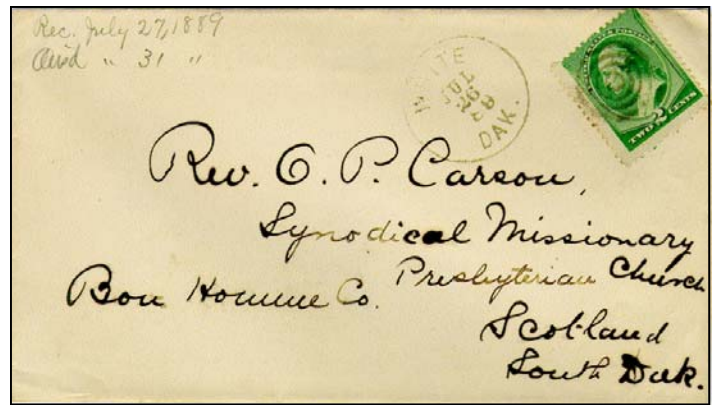 Rec. July 27, 1889
Ans'd " 31 "
WHITE
JUL
26
DAK.
UNITED STATES POSTAGE
TWO 2 CENTS
Rev. O. P. Carson,
Synodical Missionary
Presbyterian Church
Bon Homme Co.
Scotland
South Dak.